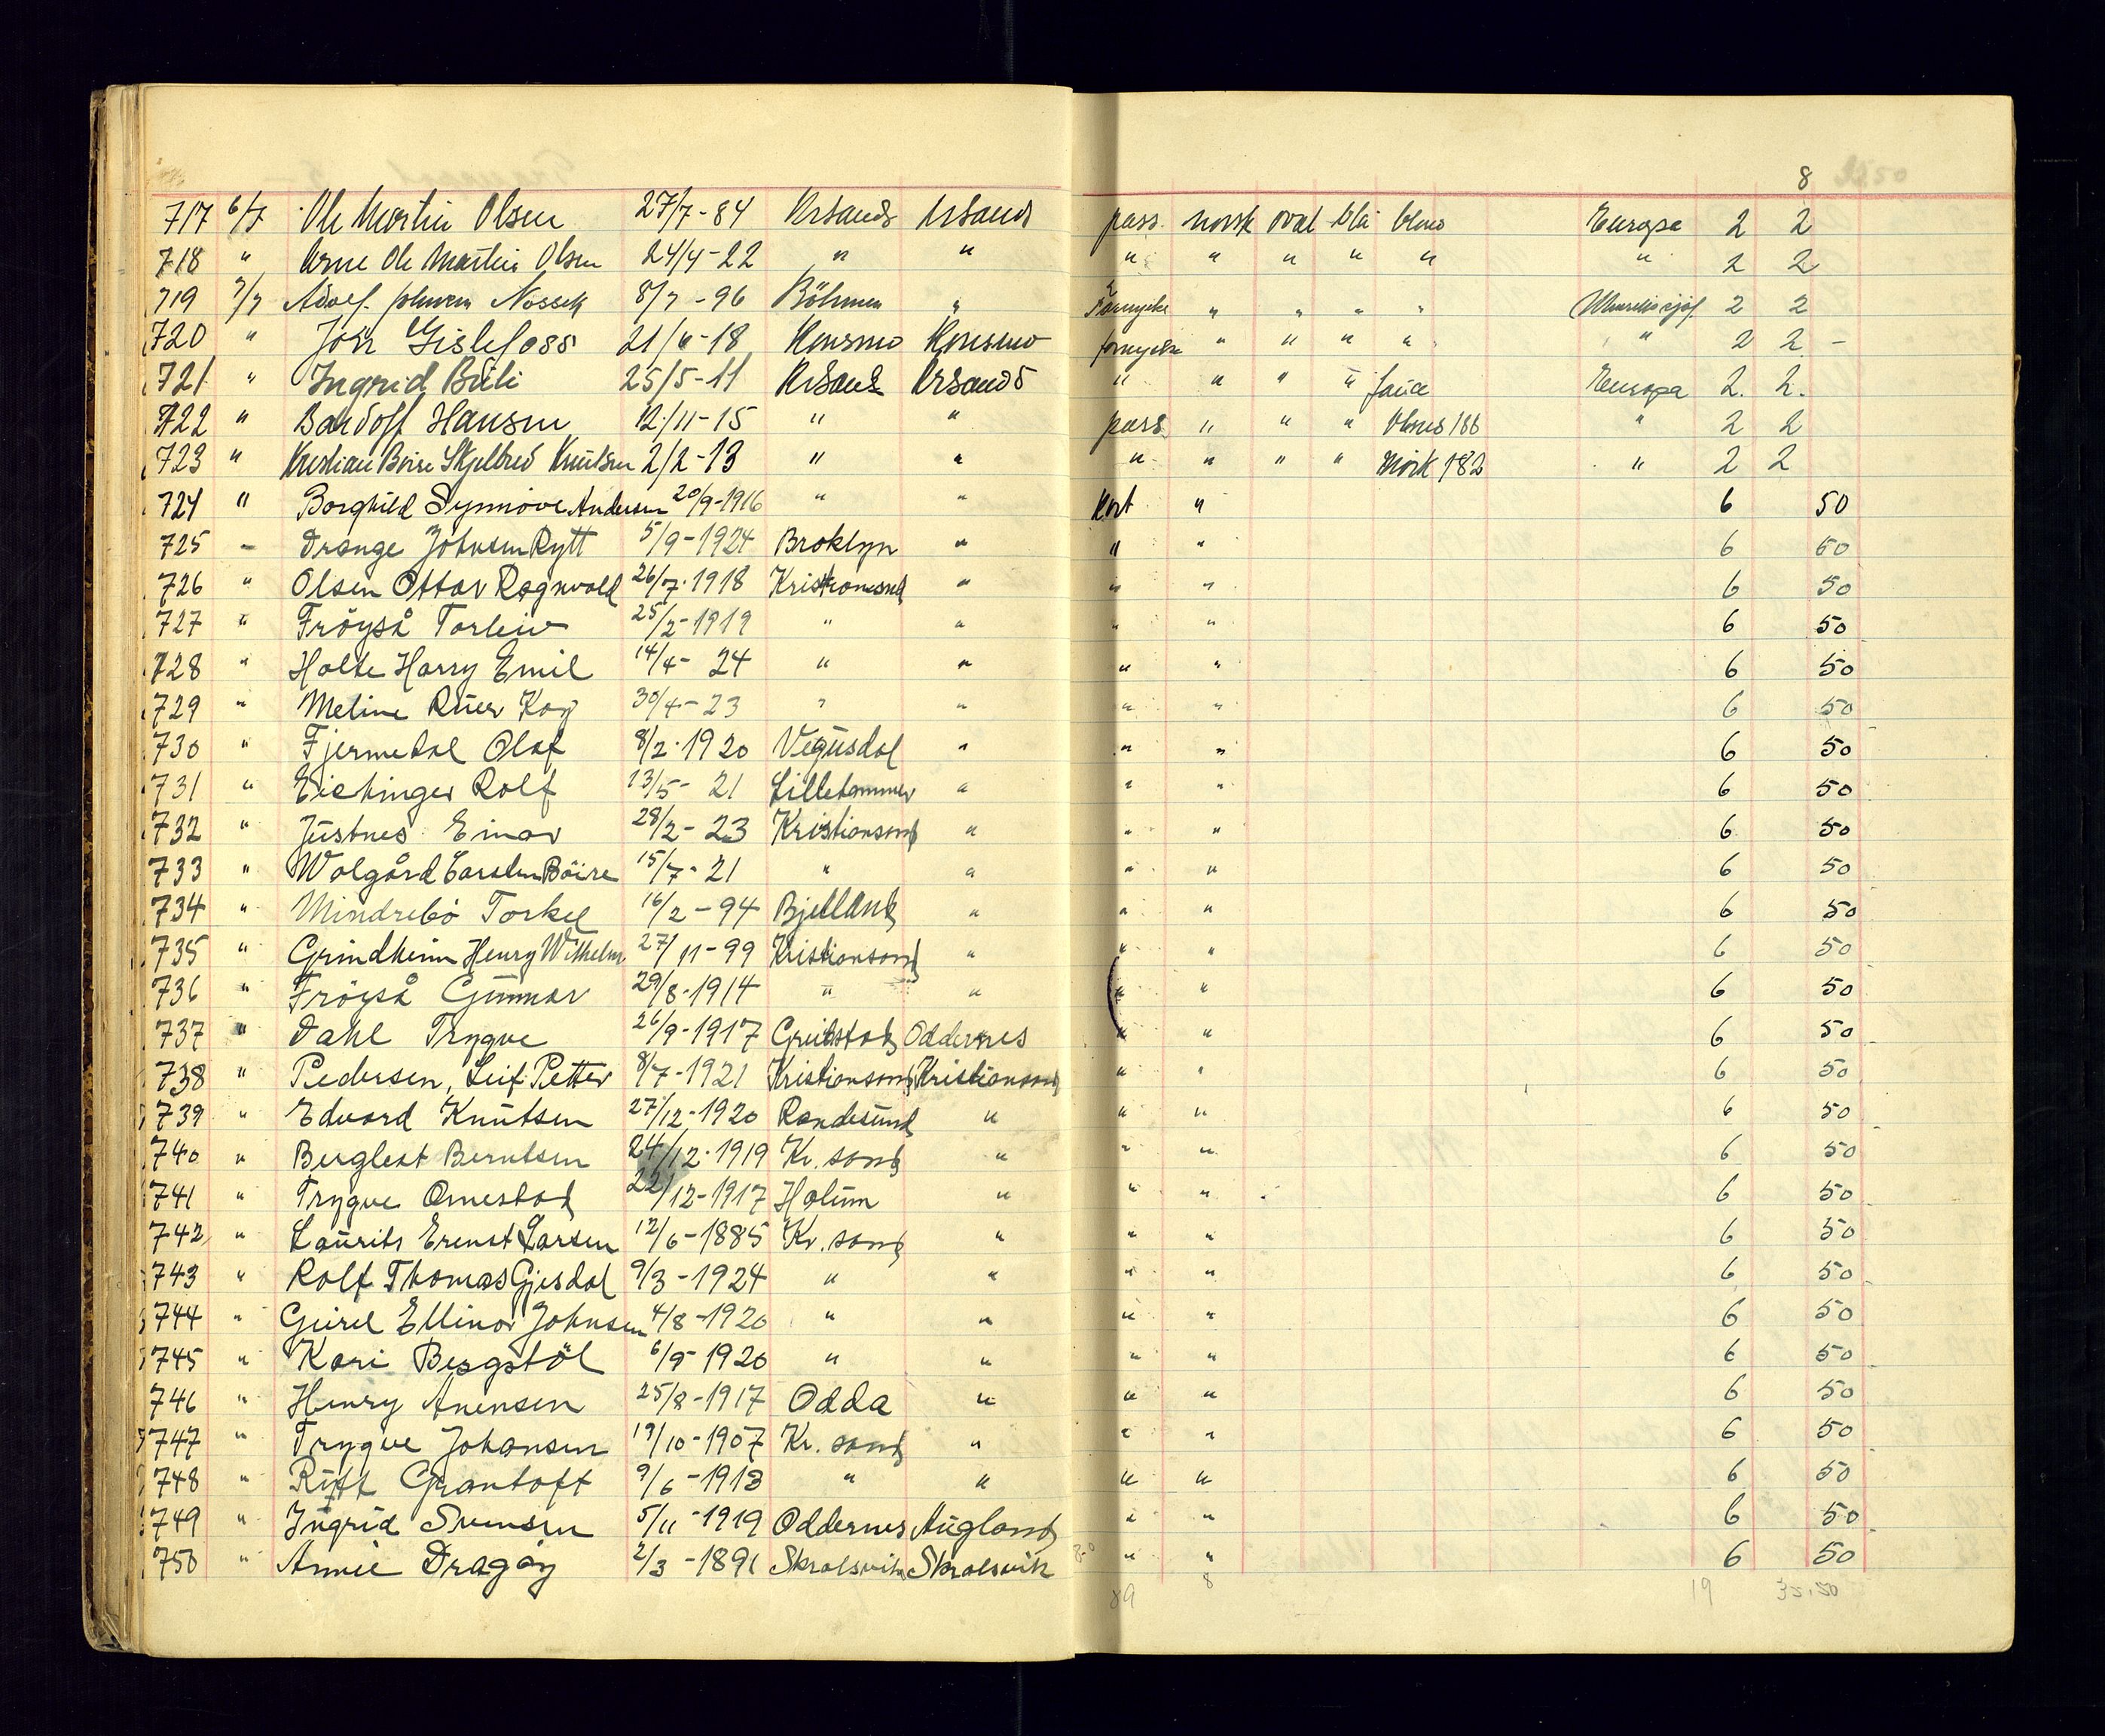 8
717 6/7 Ole Martin Olsen 27/7-84 Krsand Krsand pass. norsk oval blå blond Europa 2 2
718 " Arne Ole Martin Olsen 24/4-22 " " " " " " " " 2 2
719 7/7 Adolf Nossek 8/7-96 Böhmen " Fornyelse " " " " 2 2
720 " Gislefoss 21/6-18 Konsmo Konsmo fornyelse " " " " " 2 2 -
721 " Ingrid Büli 25/5-11 KrSand KrSand " " " " Europa 2. 2.
722 " Bardolf Hansen 12/11-15 " " pass " " " blond 186 " 2 2
723 " Kristian Boise Skjelbred Knutsen 2/2-13 " " " " " " mörk 182 " 2 2
724 " Borghild Synnöve Andersen 20/9-1916 " " Kort " 6 50
725 - Drange Johnsen Rytt 5/9-1924 Broklyn " " " 6 50
726 " Olsen Ottar Ragnvald 26/7-1918 Kristiansand " " " 6 50
727 " Fröyså Torleiv 25/2-1919 " " " " 6 50
728 " Holte Harry Emil 14/4- 24 " " " " 6 50
729 " Meline Rüer Kay 30/4-23 " " " " 6 50
730 " Fjermedal Olaf 8/2-1920 Vegusdal " " " 6 50
731 " Eichinger Rolf 13/5- 21 Lillehammer " " " 6 50
732 " Justnes Einar 28/2-23 Kristiansand " " " 6 50
733 " Walgård Carsten Böire 15/7-21 " " " " 6 50
734 " Mindrebö Torkel 16/2-94 Bjelland " " " 6 50
735 " Grindheim Henry Wilhelm 27/11-99 Kristiansand " " " 6 50
736 " Fröyså Gunnar 29/8-1914 " " " " 6 50
737 " Dahl Trygve 26/9-1917 Grimstad Oddernes " " 6 50
738 " Pedersen, Leif Petter 8/7-1921 Kristiansand Kristiansand " " 6 50
739 " Edvard Knutsen 27/12-1920 Randesund " " " 6 50
740 " Bergleit Berntsen 24/12-1919 Kr. sand " " " 6 50
741 " Trygve Ornestad 22/12-1917 Holum " " " 6 50
742 " Laurits Erenst Larsen 12/6-1885 Kr. sand " " " 6 50
743 " Rolf Thomas Gjesdal 9/3-1924 " " " " 6 50
744 " Geirel Ellinor Johnsen 4/8-1920 " " " " 6 50
745 " Kari Bergstöl 6/9-1920 " " " " 6 50
746 " Henry Anensen 25/8-1917 Odda " " " 6 50
747 " Trygve Johansen 19/10-1907 Kr. sand " " " 6 50
748 " Ruth Grantoft 9/6-1913 " " " " 6 50
749 " Ingrid Svensen 5/11-1919 Oddernes Augland " " 6 50
750 " Annie Dragöy 2/3-1891 Skrolsvik Skrolsvik " " 6 50
89 8 19 35.50